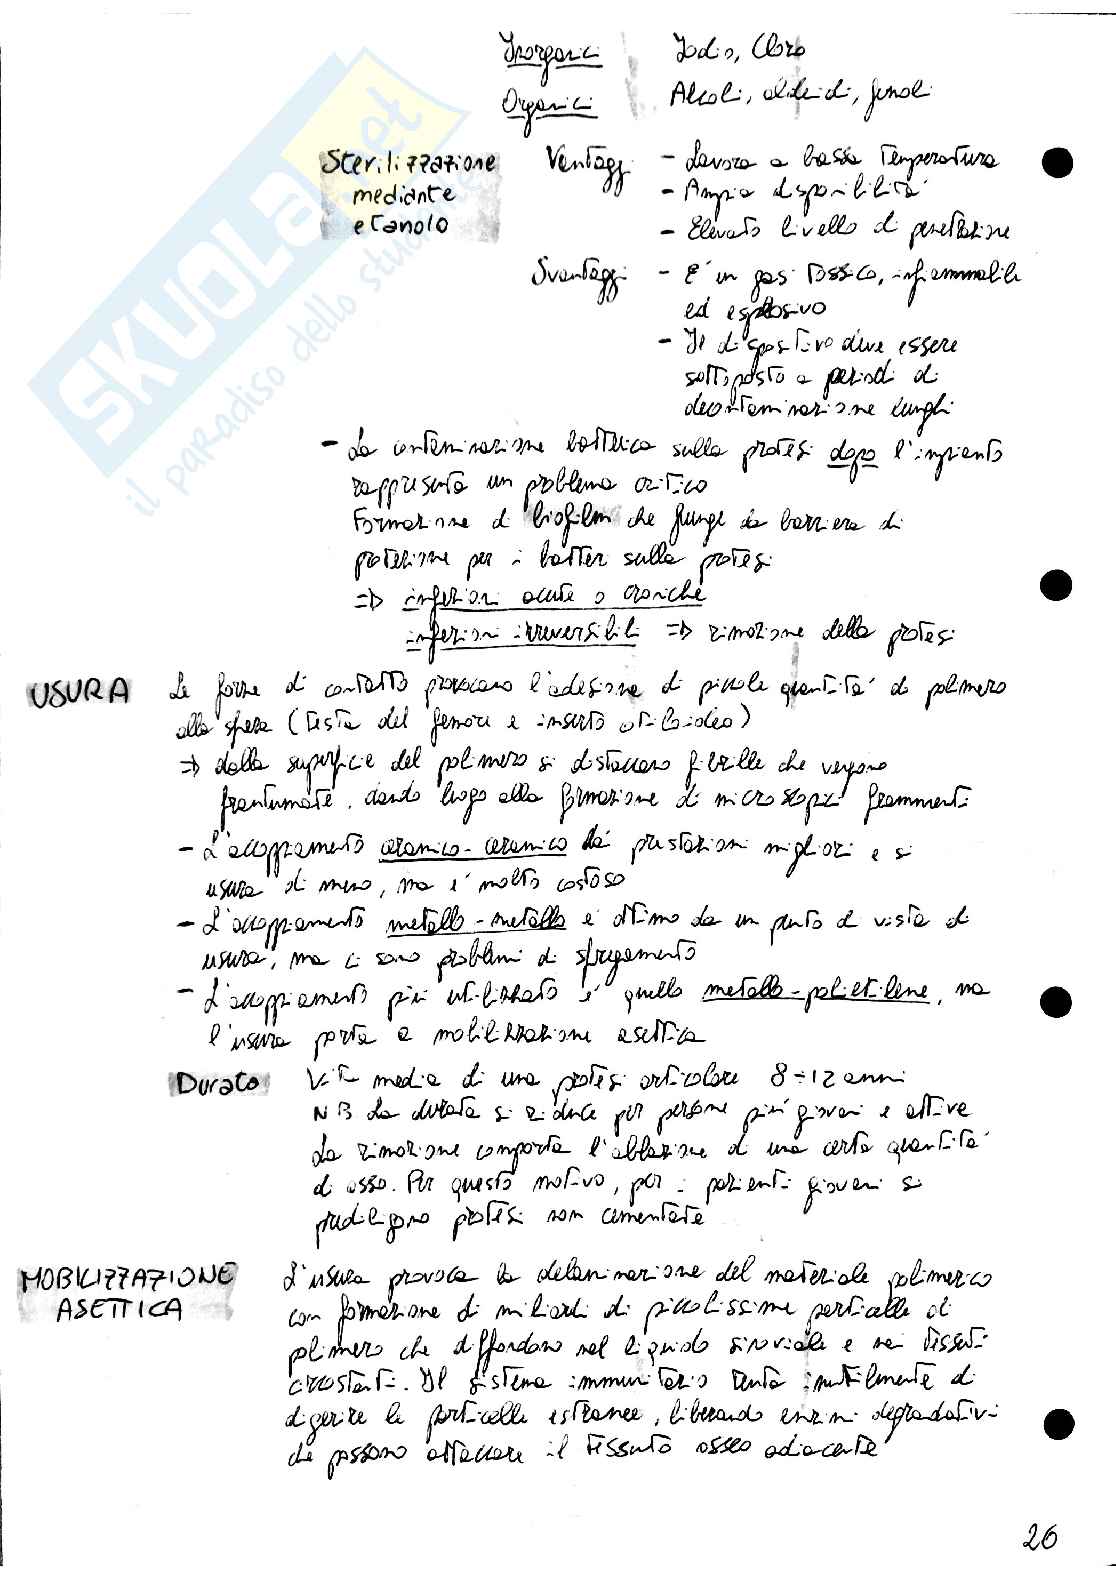 Inorganici Iodio, Cloro
Organici Alcoli, aldeidi, fenoli
Sterilizzazione
mediante
etanolo
Vantaggi - Lavora a bassa temperatura
- Ampia disponibilità
- Elevato livello di penetrazione
Svantaggi - E' un gas tossico, infiammabile
ed esplosivo
- Il dispositivo deve essere
sottoposto a periodi di
decontaminazione lunghi
- La contaminazione batterica sulla protesi dopo l'impianto
rappresenta un problema critico
Formazione di biofilm che funge da barriera di
protezione per i batteri sulla protesi
=> infezioni acute o croniche
infezioni irreversibili => rimozione della protesi
USURA Le forze di contatto provocano l'adesione di piccole quantità di polimero
alla sfera (testa del femore e inserto cotiloideo)
=> dalla superficie del polimero si distaccano fibrille che vengono
frantumate, dando luogo alla formazione di microscopici frammenti
- L'accoppiamento ceramico-ceramico dà prestazioni migliori e si
usura di meno, ma è molto costoso
- L'accoppiamento metallo-metallo è ottimo da un punto di vista di
usura, ma ci sono problemi di sfregamento
- L'accoppiamento più utilizzato è quello metallo-polietilene, ma
l'usura porta a mobilizzazione asettica
Durata Vita media di una protesi articolare 8÷12 anni
NB La durata si riduce per persone più giovani e attive
La rimozione comporta l'ablazione di una certa quantità
di osso. Per questo motivo, per i pazienti giovani si
prediligono protesi non cementate
MOBILIZZAZIONE
ASETTICA
L'usura provoca la delaminazione del materiale polimerico
con formazione di miliardi di piccolissime particelle di
polimero che diffondono nel liquido sinoviale e nei tessuti
circostanti. Il sistema immunitario tenta inutilmente di
digerire le particelle estranee, liberando enzimi degradativi
che possono attaccare il tessuto osseo adiacente
26
SKUOLA.net
il paradiso dello